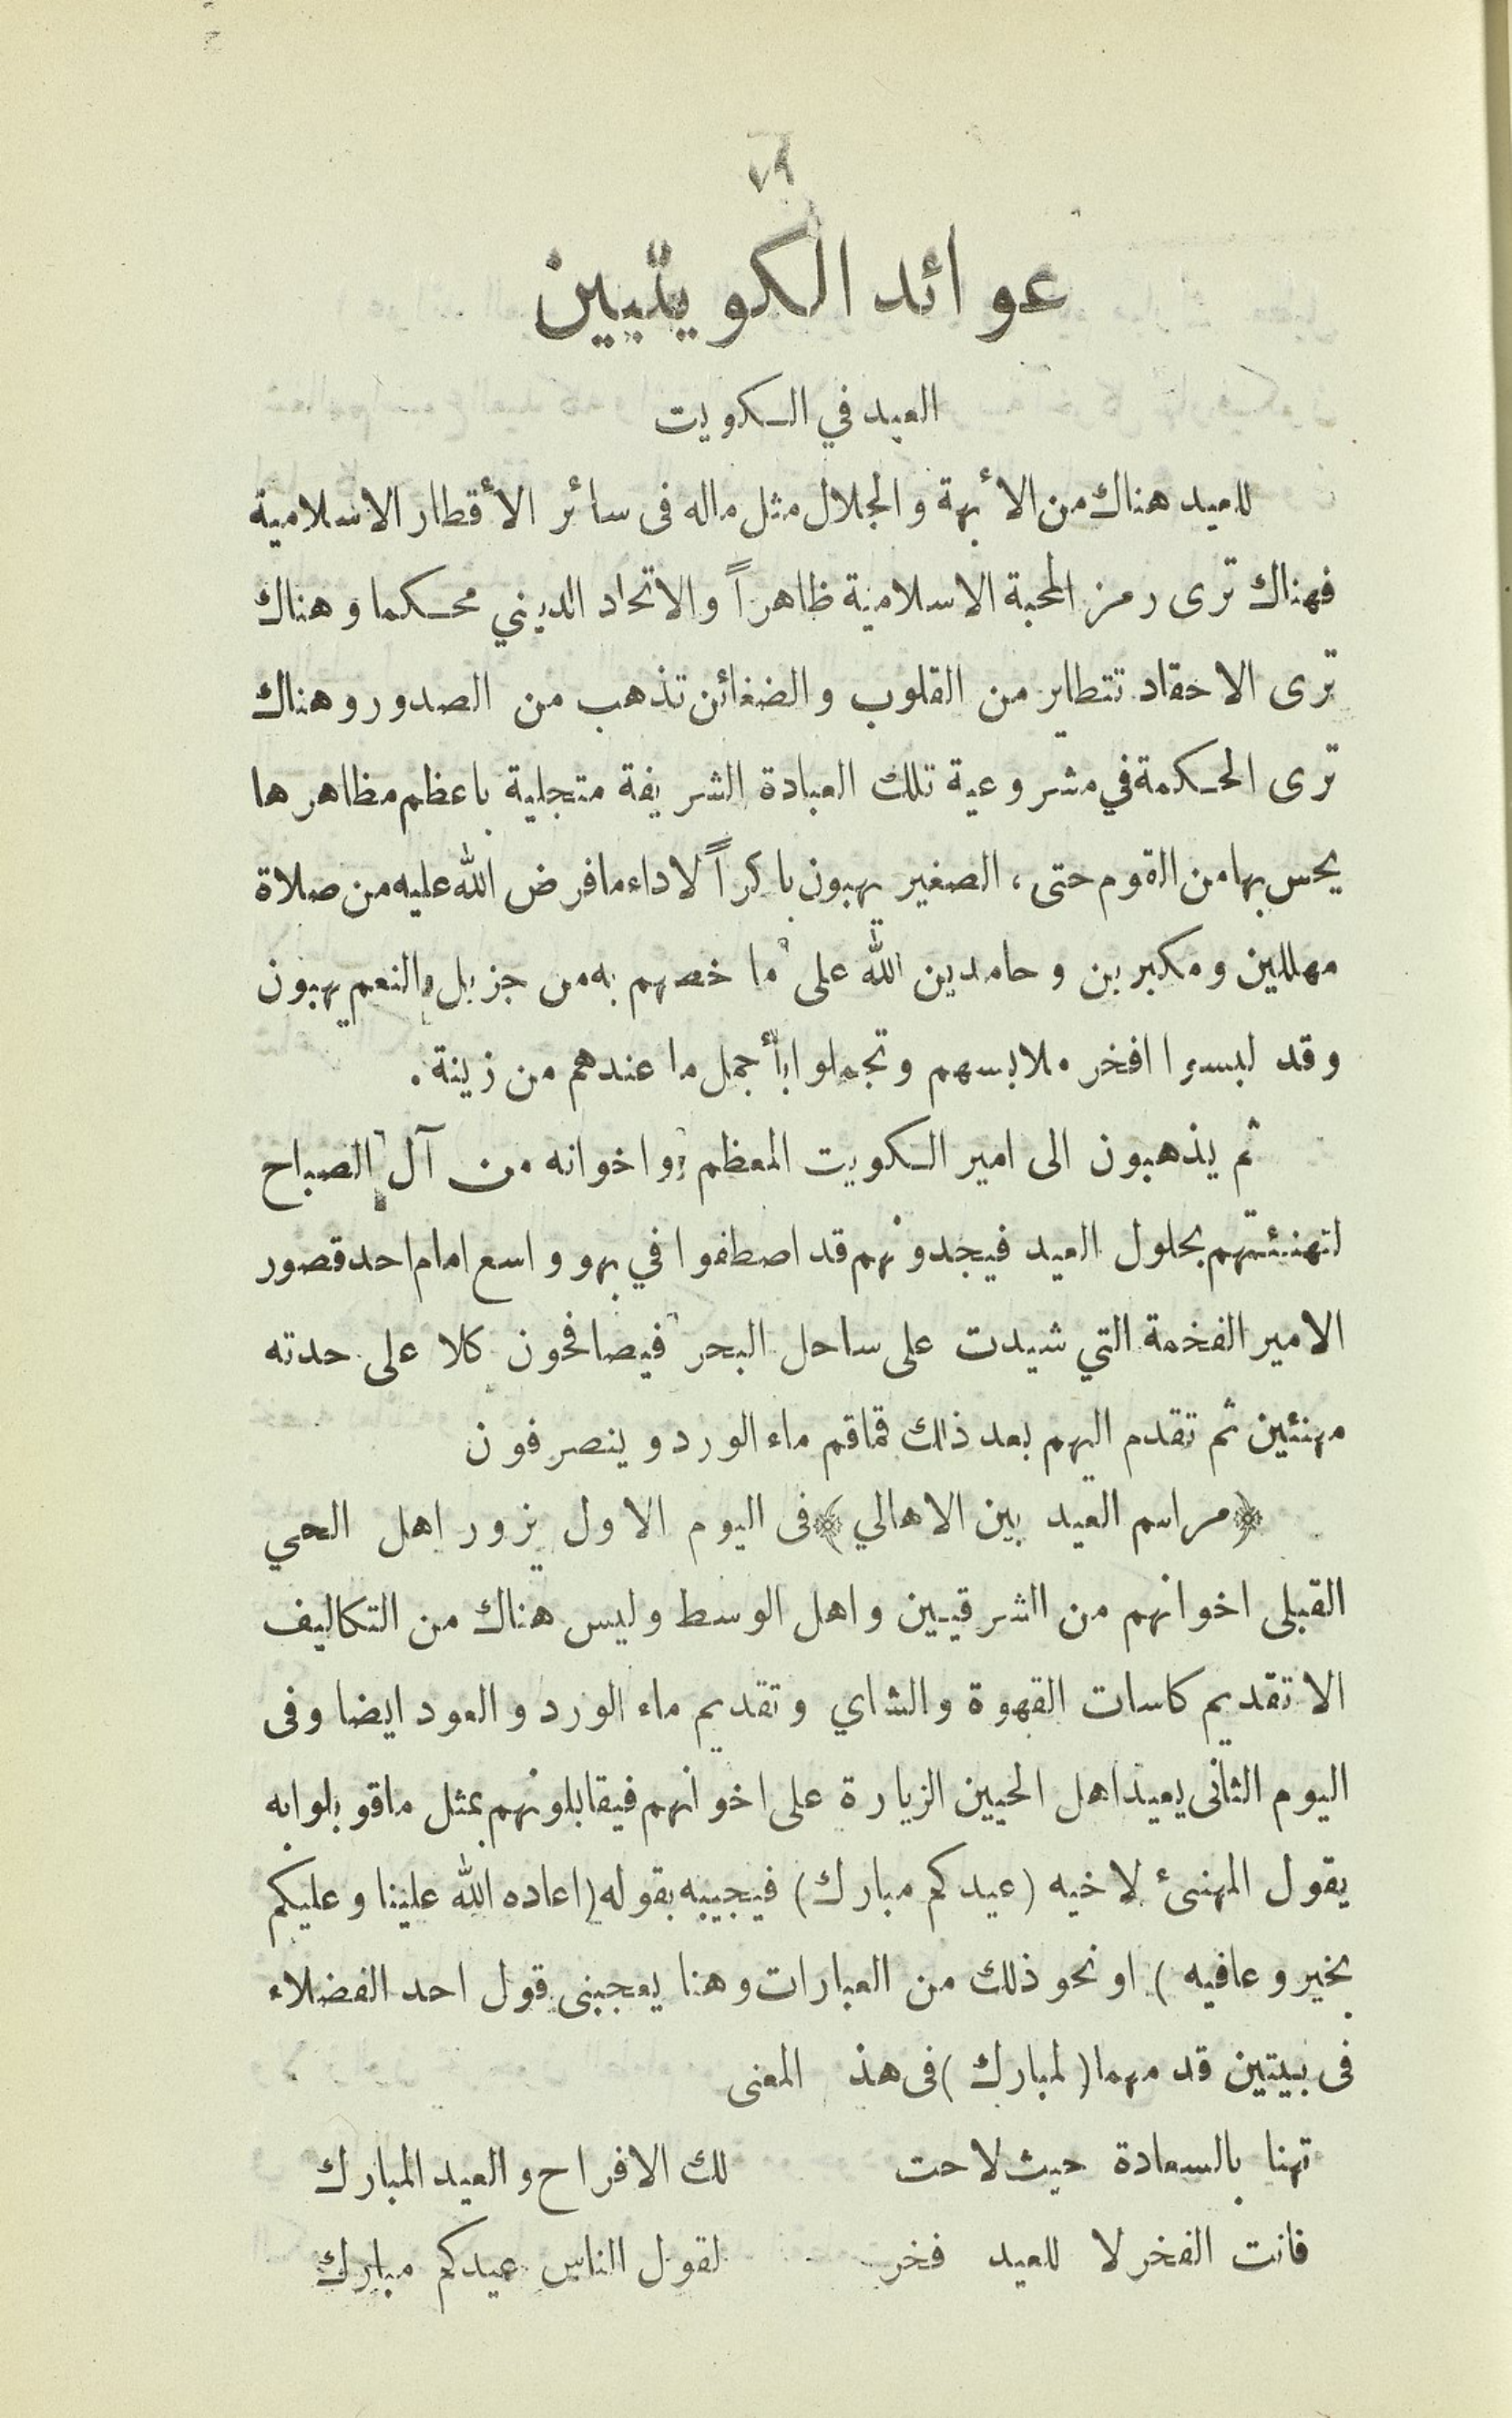 ٧٩
عوائد الكويتيين
العيد في الكويت
للعيد هناك من الأبهة والجلال مثل ماله فى سائر الأقطار الاسلامية
فهناك ترى رمز المحبة الاسلامية ظاهراً والاتحاد الديني محكما وهناك
ترى الاحقاد تتطاير من القلوب والضغائن تذهب من الصدور وهناك
ترى الحكمة في مشروعية تلك العبادة الشريفة متجلية باعظم مظاهرها
يحس بها من القوم حتى، الصغير يهبون باكراً لاداء مافرض الله عليه من صلاة
مهللين ومكبرين وحامدين الله على ما خصهم به من جزيل والنعم يهبون
وقد لبسوا افخر ملابسهم وتجملوا بأجمل ما عندهم من زينة .
ثم يذهبون الى امير الكويت المعظم واخوانه من آل الصباح
لتهنئتهم بحلول العيد فيجدونهم قد اصطفوا في بهو واسع امام احد قصور
الامير الفخمة التي شيدت على ساحل البحر فيصافحون كلا على حدته
مهنئين ثم تقدم اليهم بعد ذلك قماقم ماء الورد وينصرفون
﴿مراسم العيد بين الاهالي﴾ فى اليوم الاول يزور اهل الحي
القبلى اخوانهم من الشرقيين واهل الوسط وليس هناك من التكاليف
الا تقديم كاسات القهوة والشاي وتقديم ماء الورد والعود ايضا وفى
اليوم الثانى يعيد اهل الحيين الزيارة على اخوانهم فيقابلونهم بمثل ماقوبلوابه
يقول المهنئ لاخيه (عيدكم مبارك) فيجيبه بقوله (اعاده الله علينا وعليكم
بخير وعافيه) او نحو ذلك من العبارات وهنا يعجبنى قول احد الفضلاء
فى بيتين قد مهما (لمبارك) فى هذ المعنى
تهنا بالسعادة حيث لاحت لك الافراح والعيد المبارك
فانت الفخر لا للعيد فخر لقول الناس عيدكم مبارك